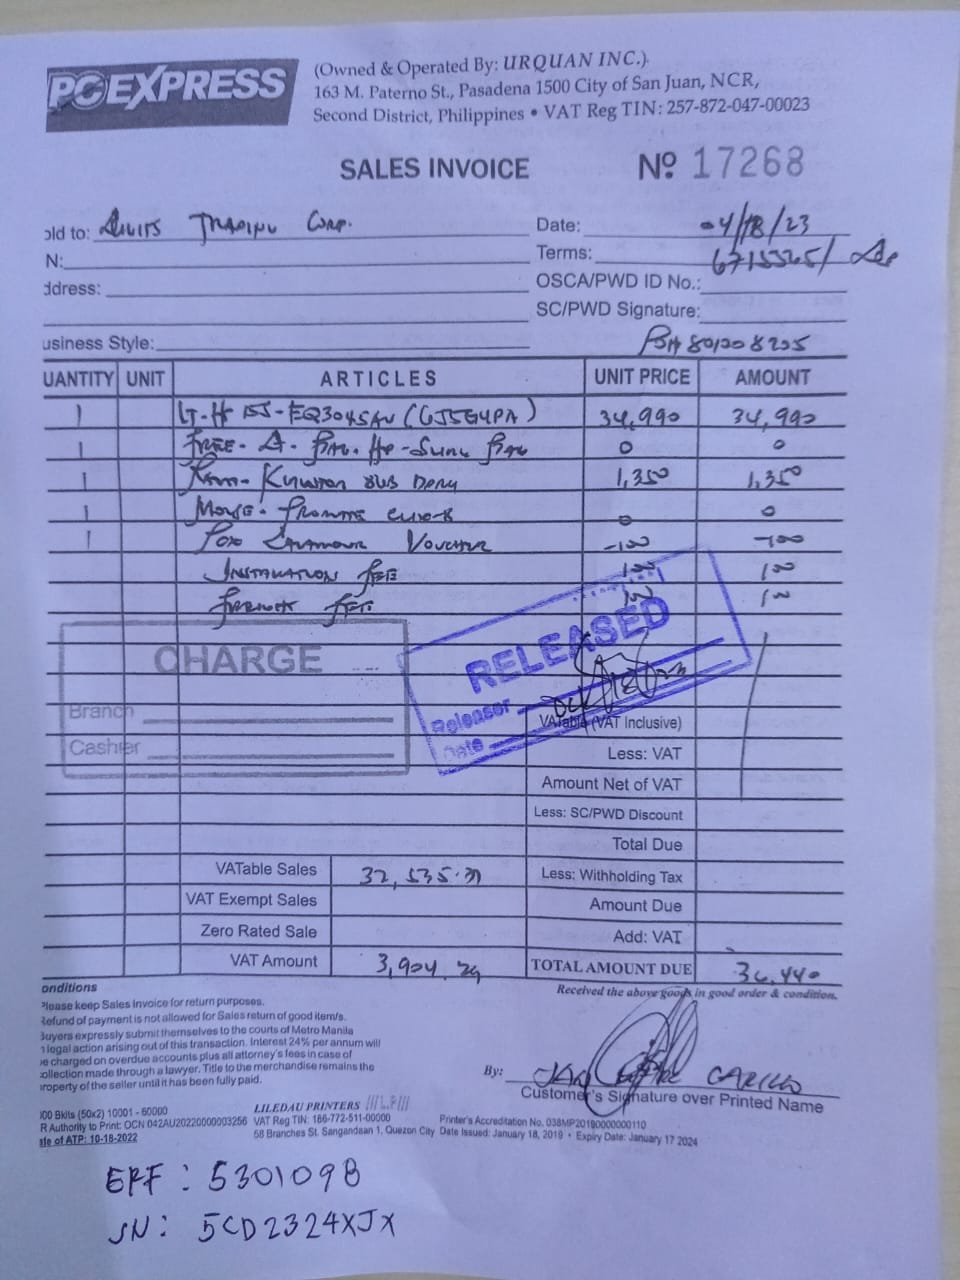 PC EXPRESS
(Owned & Operated By: URQUAN INC.)
163 M. Paterno St., Pasadena 1500 City of San Juan, NCR,
Second District, Philippines • VAT Reg TIN: 257-872-047-00023
SALES INVOICE Nº 17268
old to: Trading Corp.
Date: 04/18/23
N:
Terms: 6715565/
ddress:
OSCA/PWD ID No.:
SC/PWD Signature:
usiness Style:
UANTITY UNIT ARTICLES UNIT PRICE AMOUNT
1 LT-H 15S-EQ3045AU (6J5G4PA) 34,990 34,990
1 FREE- Bag 0 0
1 1,350 1,350
1 Mouse- 0 0
1 Voucher -100 -100
Installation Fee 100 100
Freight Fee 100 100
CHARGE
Branch
Cashier
RELEASED
Releaser
Date
VATable (VAT Inclusive)
Less: VAT
Amount Net of VAT
Less: SC/PWD Discount
Total Due
VATable Sales 32,535.71 Less: Withholding Tax
VAT Exempt Sales Amount Due
Zero Rated Sale Add: VAT
VAT Amount 3,904.29 TOTAL AMOUNT DUE 36,440
onditions
Please keep Sales Invoice for return purposes.
Refund of payment is not allowed for Sales return of good item/s.
Buyers expressly submit themselves to the courts of Metro Manila
legal action arising out of this transaction. Interest 24% per annum will
be charged on overdue accounts plus all attorney's fees in case of
ollection made through a lawyer. Title to the merchandise remains the
roperty of the seller until it has been fully paid.
Received the above goods in good order & condition.
By: CARILLO
Customer's Signature over Printed Name
00 Bklts (50x2) 10001 - 60000
R Authority to Print: OCN 042AU20220000003256
te of ATP: 10-18-2022
LILEDAU PRINTERS
VAT Reg TIN: 166-772-511-00000
58 Branches St. Sangandaan 1, Quezon City
Printer's Accreditation No. 038MP20190000000110
Date Issued: January 18, 2019 • Expiry Date: January 17 2024
EPF : 5301098
SN : 5CD2324XJX